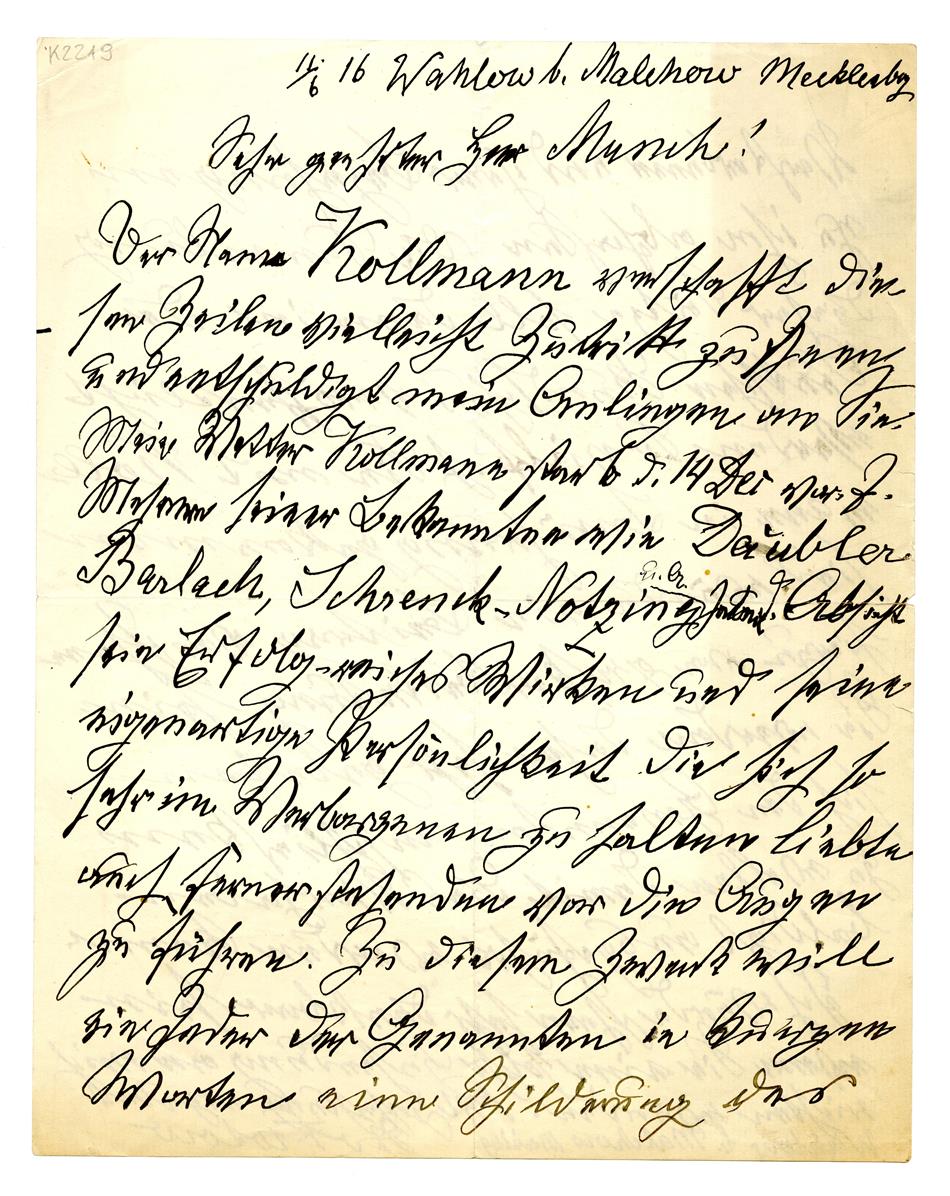 K2249
11/6 16 Wahlow b. Malchow Mecklenbg
Sehr geehrter Herr Munch!
Der Name Kollmann verschafft die-
sen Zeilen vielleicht Zutritt zu Ihnen
und entschuldigt mein Anliegen an Sie.
Mein Vetter Kollmann starb d. 14 Dec vor. J.
Mehrere seiner Bekannten wie Däubler
Barlach, Schrenck-Notzing haben d. Absicht
sein Erfolg-reiches Wirken und seine
eigenartige Persönlichkeit die sich so
sehr im Verborgenen zu halten liebte
auch Fernerstehenden vor die Augen
zu führen. Zu diesem Zweck will
ein Jeder der Genannten in kurzen
Worten eine Schilderung des